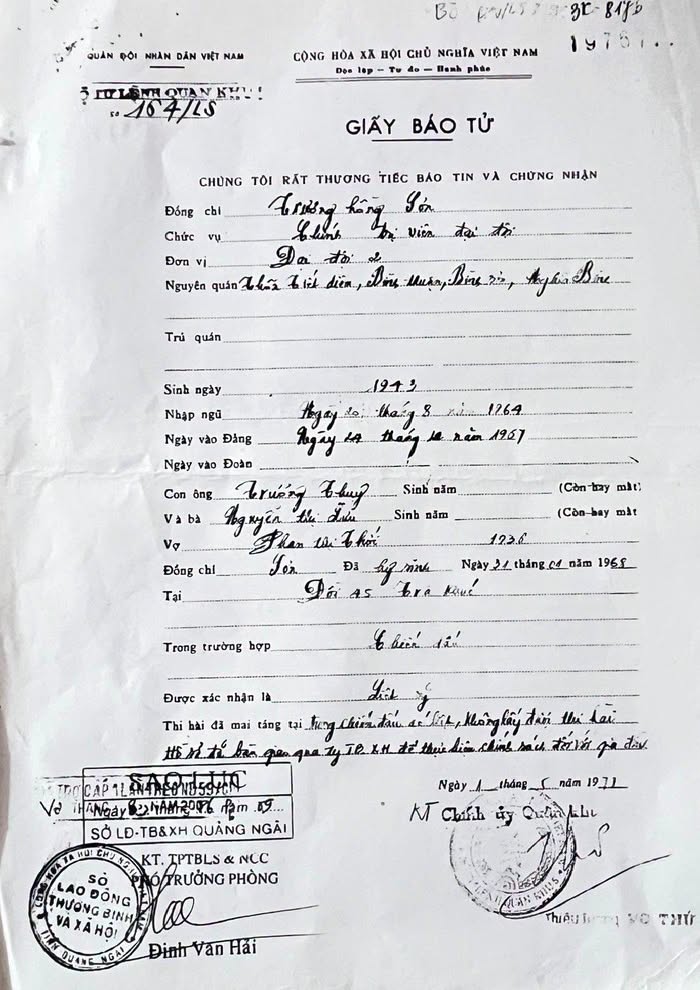 3K-81/b
QUÂN ĐỘI NHÂN DÂN VIỆT NAM
CỘNG HÒA XÃ HỘI CHỦ NGHĨA VIỆT NAM
Độc lập — Tự do — Hạnh phúc
TƯ LỆNH QUÂN KHU
số 164/LS
GIẤY BÁO TỬ
CHÚNG TÔI RẤT THƯƠNG TIẾC BÁO TIN VÀ CHỨNG NHẬN
Đồng chí Trương hồng Sơn
Chức vụ Chính trị viên đại đội
Đơn vị Đại đội 2
Nguyên quán Thôn Tiết diêm, Bình thuận, Bình Sơn, Nghĩa Bình
Trú quán
Sinh ngày 1943
Nhập ngũ Ngày tháng 8 năm 1964
Ngày vào Đảng Ngày tháng năm 1967
Ngày vào Đoàn
Con ông Trương Thuỷ Sinh năm (Còn hay mất)
Và bà Nguyễn thị Sinh năm (Còn hay mất
Vợ Phan thị 1936
Đồng chí Sơn Đã hy sinh Ngày 31 tháng 01 năm 1968
Tại Đồi 45 Trà
Trong trường hợp Chiến đấu
Được xác nhận là Liệt sỹ
Thi hài đã mai táng tại trong chiến đấu ác liệt, không lấy được thi hài
Hồ sơ đã bàn giao qua ty TB.XH để thực hiện chính sách đối với gia đình
Ngày 1 tháng 5 năm 1977
KT Chính ủy Quân khu
TRỢ CẤP 1 LẦN THEO NĐ 59/CP
SAO LỤC
SỞ LD-TB&XH QUẢNG NGÃI
KT. TPTBLS & NCC
PHÓ TRƯỞNG PHÒNG
SỞ
LAO ĐỘNG
THƯƠNG BINH
VÀ XÃ HỘI
TỈNH QUẢNG NGÃI
Đinh Văn Hải
Thiếu tướng VÕ THỨ